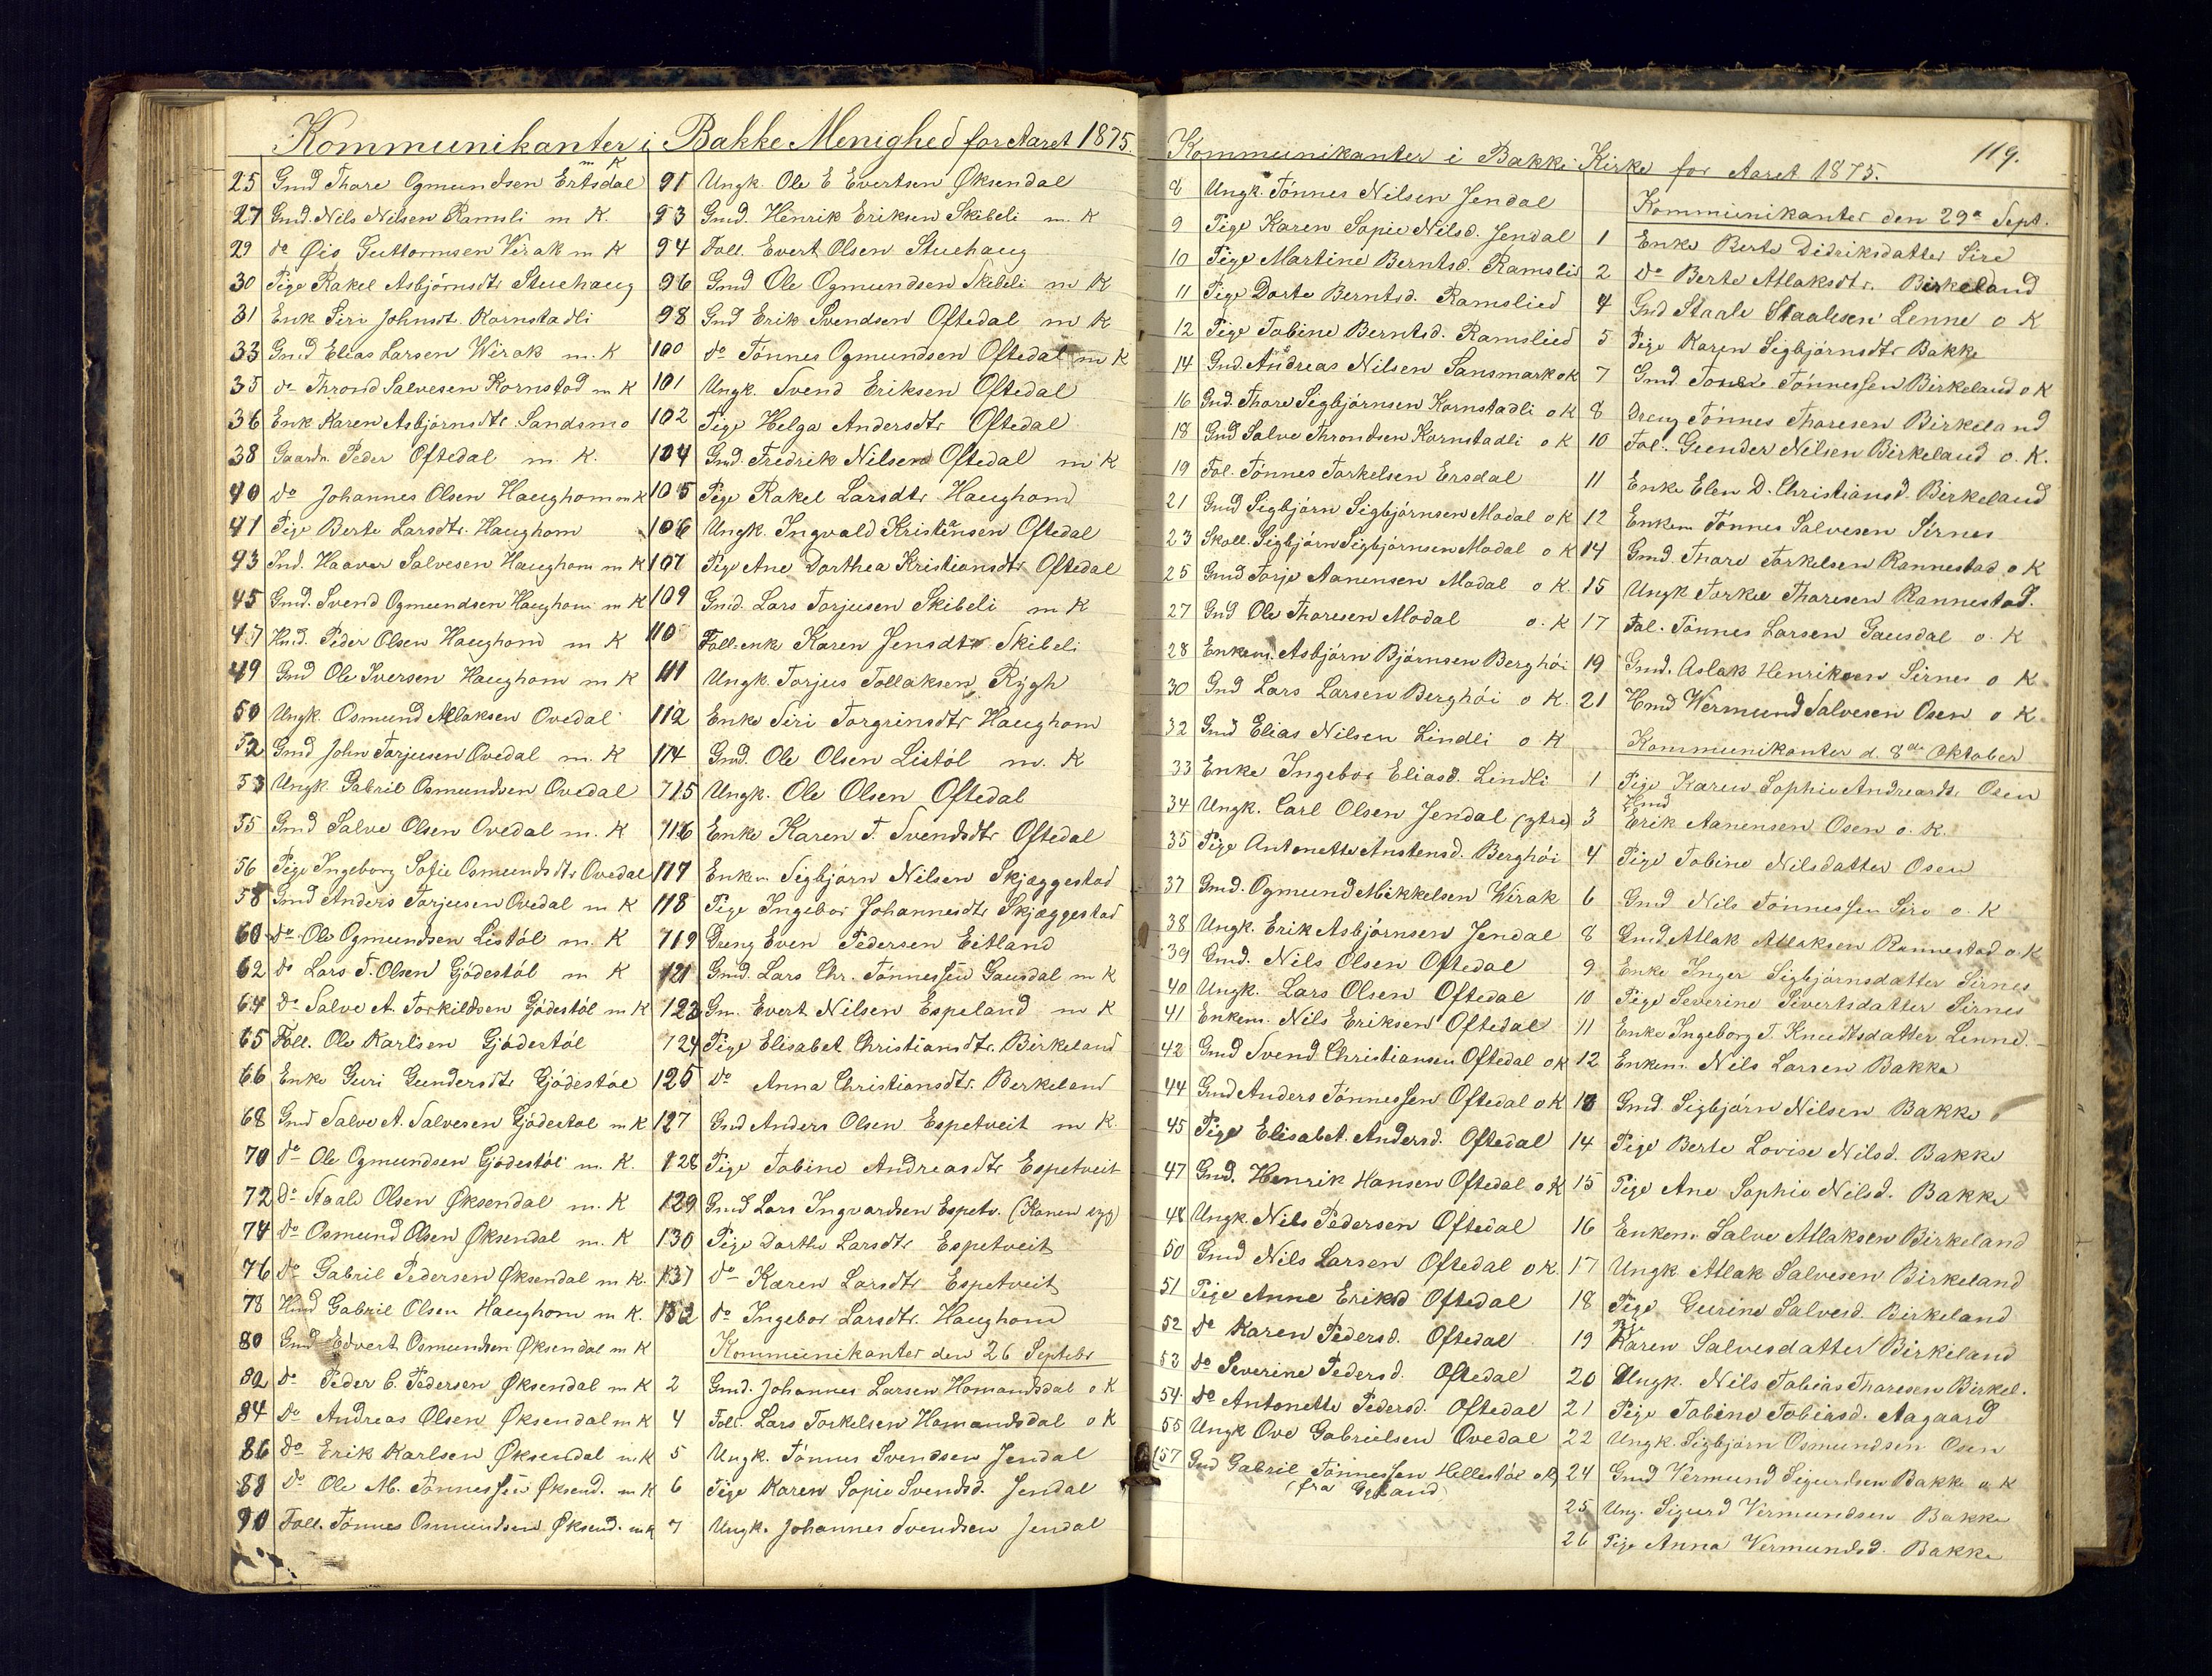 Kommunikanter i Bakke Menighed for Aaret 1875.
m K
25 Gmd Thore Ogmundsen Ertsdal
27 Gmd. Nils Nilsen Ramsli m K.
29 do Øis Guttormsen Wirak m K
30 Pige Rakel Asbjörnsdtr Stuehaug
31 Enk Siri Johnsdt. Kornstadli
33 Gmd Elias Larsen Wirak m. K
35 do Thrond Salvesen Kornstad m K
36 Enk Karen Asbjörnsdtr Sandsmo
38 Gaardr. Peder Oftedal m. K.
40 do Johannes Olsen Haughom m K
41 Pige Berte Larsdtr. Haughom
43 Ind. Haaver Salvesen Haughom m K
45 Gmd. Svend Ogmundsen Haughom m K
47 Hmd. Peder Olsen Haughom m K
49 Gmd Ole Iversen Haughom m K
50 Ungk. Osmund Atlaksen Ovedal
52 Gmd John Torjusen Ovedal m. K
53 Ungk Gabriel Osmundsen Ovedal
55 Gmd Salve Olsen Ovedal m. K
56 Pige Ingeborg Sofie Osmundsdtr Ovedal
58 Gmd Anders Torjusen Ovedal m K
60 do Ole Ogmundsen Listöl m. K
62 do Lars T. Olsen Gjödestöl m K
64 Do Salve A. Torkildsen Gjödestöl m K
65 Foll. Ole Karlsen Gjödestöl
66 Enke Guri Gundersdtr Gjödestöl
68 Gmd Salve A. Salvesen Gjödestol m K
70 do Ole Ogmundsen Gjödestöl m. K.
72 Do Staale Olsen Øksendal m. K
74 Do Osmund Olsen Øksendal m. K
76 Do Gabril Pedersen Øksendal m K.
78 Hmd Gabril Olsen Haughom m K.
80 Gmd Edvert Osmundsen Øksendal m K
82 do Peder C. Pedersen Øksendal m K
84 do Andreas Olsen Øksendal m K
86 Do Erik Karlsen Øksendal m K
88 Do Ole M. Tönnessen Øksend. m K
90 Foll. Tönnes Osmundsen Øksend. m K
91 Ungk. Ole E Evertsen Øksendal
93 Gmd. Henrik Eriksen Skibeli m. K
94 Foll. Evert Olsen Stuehaug
96 Gmd Ole Ogmundsen Skibeli m K
98 Gmd Erik Svendsen Oftedal m K
100 do Tönnes Ogmundsen Oftedal m K
101 Ungk. Svend Eriksen Oftedal
102 Pige Helga Andersdtr Oftedal
104 Gmd. Fredrik Nilsen Oftedal m K
105 Pige Rakel Larsdtr Haughom
106 Ungk. Ingvald Kristensen Oftedal
107 Pige Ane Dorthea Kristiansdtr Oftedal
109 Gmd. Lars Torjusen Skibeli m K
110 Foll.enk Karen Jensdtr Skibeli
111 Ungk. Torjus Tollaksen Rygh
112 Enke Siri Torgrimsdtr Haughom
114 Gmd. Ole Olsen Listöl m. K
115 Ungk. Ole Olsen Oftedal
116 Enke Karen T. Svendsdtr Oftedal
117 Enkem Sigbjörn Nilsen Skjæggestad
118 Pige Ingebor Johannesdtr Skjæggestad
119 Dreng Even Pedersen Eitland
121 Gmd. Lars Chr. Tönnessen Gausdal m K
123 Gm. Evert Nilsen Espeland m K
124 Pige Elisabet Christiansdtr. Birkeland
125 Do Anna Christiansdtr. Berkeland
127 Gmd Anders Olsen Espetveit m K.
128 Pige Tobine Andreasdtr Espetveit
129 Gmd Lars Ingvardsen Espetv. (Konen syg)
130 Pige Dorthe Larsdtr Espetveit
131 do Karen Larsdtr Espetveit
132 do Ingebor Larsdtr. Haughom
Kommunikanter den 26 Septebr
2 Gmd. Johannes Larsen Homandsdal o K
4 Foll. Lars Torkelsen Homandsdal o K
5 Ungk. Tönnes Svendsen Jendal
6 Pige Karen Sopie Svendsd. Jendal
7 Ungk. Johannes Svendsen Jendal
Kommunikanter i Bakke Kirke for Aaret 1875.
119.
8 Ungk. Tönnes Nilsen Jendal
9 Pige Karen Sopie Nilsd. Jendal
10 Pige Martine Berntsd. Ramslie
11 Pige Dorte Berntsd. Ramslied
12 Pige Tobine Berntsd. Ramslied
14 Gmd. Andreas Nilsen Sansmark o K
16 Gmd. Thore Sigbjörnsen Kornstadli o K
18 Gmd Salve Throndsen Kornstadli o K
19 Fol. Tönnes Torkelsen Ersdal
21 Gmd Sigbjörn Sigbjörnsen Modal o K
23 Skoll. Sigbjörn Sigbjörnsen Modal o K
25 Gmd Torje Aanensen Modal o K.
27 Gmd Ole Thoresen Modal o. K
28 Enkem. Asbjörn Björnsen Berghöi
30 Gmd Lars Larsen Berghöi o K.
32 Gmd Elias Nilsen Lindli o K
33 Enke Ingebor Eliasd. Lindli
34 Ungk. Carl Olsen Jendal (ytre)
35 Pige Antonette Anstensd. Berghöi
37 Gmd. Ogmund Mikkelsen Wirak
38 Ungk. Erik Asbjörnsen Jendal
39 Gmd. Nils Olsen Oftedal
40 Ungk. Lars Olsen Oftedal
41 Enkem. Nils Eriksen Oftedal
42 Gmd Svend Christiansen Oftedal o K
44 Gmd Anders Tönnessen Oftedal o K
45 Pige Elisabet. Andersd. Oftedal
47 Gmd. Henrik Hansen Oftedal o K
48 Ungk. Nils Pedersen Oftedal
50 Gmd Nils Larsen Oftedal o K.
51 Pige Anne Eriksd Oftedal
52 do Karen Pedersd. Oftedal
53 do Severine Pedersd. Oftedal
54 Do Antonette Pedersd. Oftedal
55 Ungk Ove Gabrielsen Ovedal
(57 Gmd Gabril Tönnessen Hellestöl o K)
(fra Gyland)
Kommunikanter den 29de Sept.
1 Enke Berte Didriksdatter Sire
2 do Berte Atlaksdtr. Birkeland
4 Gmd Staale Staalesen Lenne o K
5 Pige Karen Sigbjörnsdtr Bakke
7 Gmd. Tönnessen Birkeland o K
8 Dreng Tönnes Thoresen Birkeland
10 Fol. Gunder Nilsen Birkeland o. K.
11 Enke Elen D. Christiansd. Birkeland
12 Enkem Tönnes Salvesen Sirnes
14 Gmd. Thore Torkelsen Rannestad o K
15 Ungk Torkel Thoresen Rannestad.
17 Fol. Tönnes Larsen Gausdal o. K
19 Gmd. Aslak Henriksen Sirnes o K
21 Hmd Wermund Salvesen Osen o K.
Kommunikanter d. 8de Oktober
1 Pige Karen Sophie Andreasdr. Osen
Hmd
3 Erik Aanensen Osen o. K.
4 Pige Tobine Nilsdatter Osen
6 Gmd Nils Tönnessen Sire o. K
8 Gmd. Atlak Atlaksen Rannestad o K
9 Enke Inger Sigbjörnsdatter Sirnes
10 Pige Severine Sivertsdatter Sirnes
11 Enke Ingeborg T. Knudtsdatter Lenne.
12 Enkem. Nils Larsen Bakke
13 Gmd. Sigbjörn Nilsen Bakke o
14 Pige Berte Lovise Nilsd. Bakke
15 Pige Ane Sophie Nilsd. Bakke
16 Enkem Salve Atlaksen Birkeland
17 Ungk Atlak Salvesen Birkeland
18 Pige Gurine Salvesd. Birkeland
Pige
19 Karen Salvesdatter Birkeland
20 Ungk. Nils Tobias Thoresen Birkel.
21 Pige Tobine Tobiasd. Aagaard
22 Ungk. Sigbjörn Osmundsen Osen
24 Gmd Vermund Sigurdsen Bakke o K
25 Ung. Sigurd Vermundsen Bakke
26 Pige Anna Vermundsd. Bakke